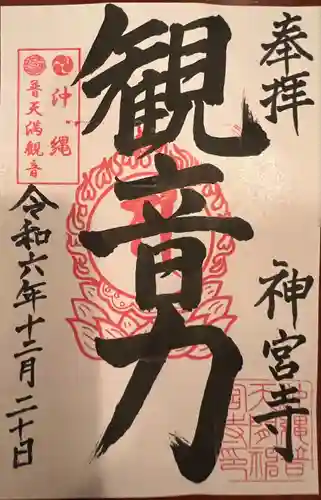 奉拝
観音力
神宮寺
沖縄
普天満観音
令和六年十二月二十日